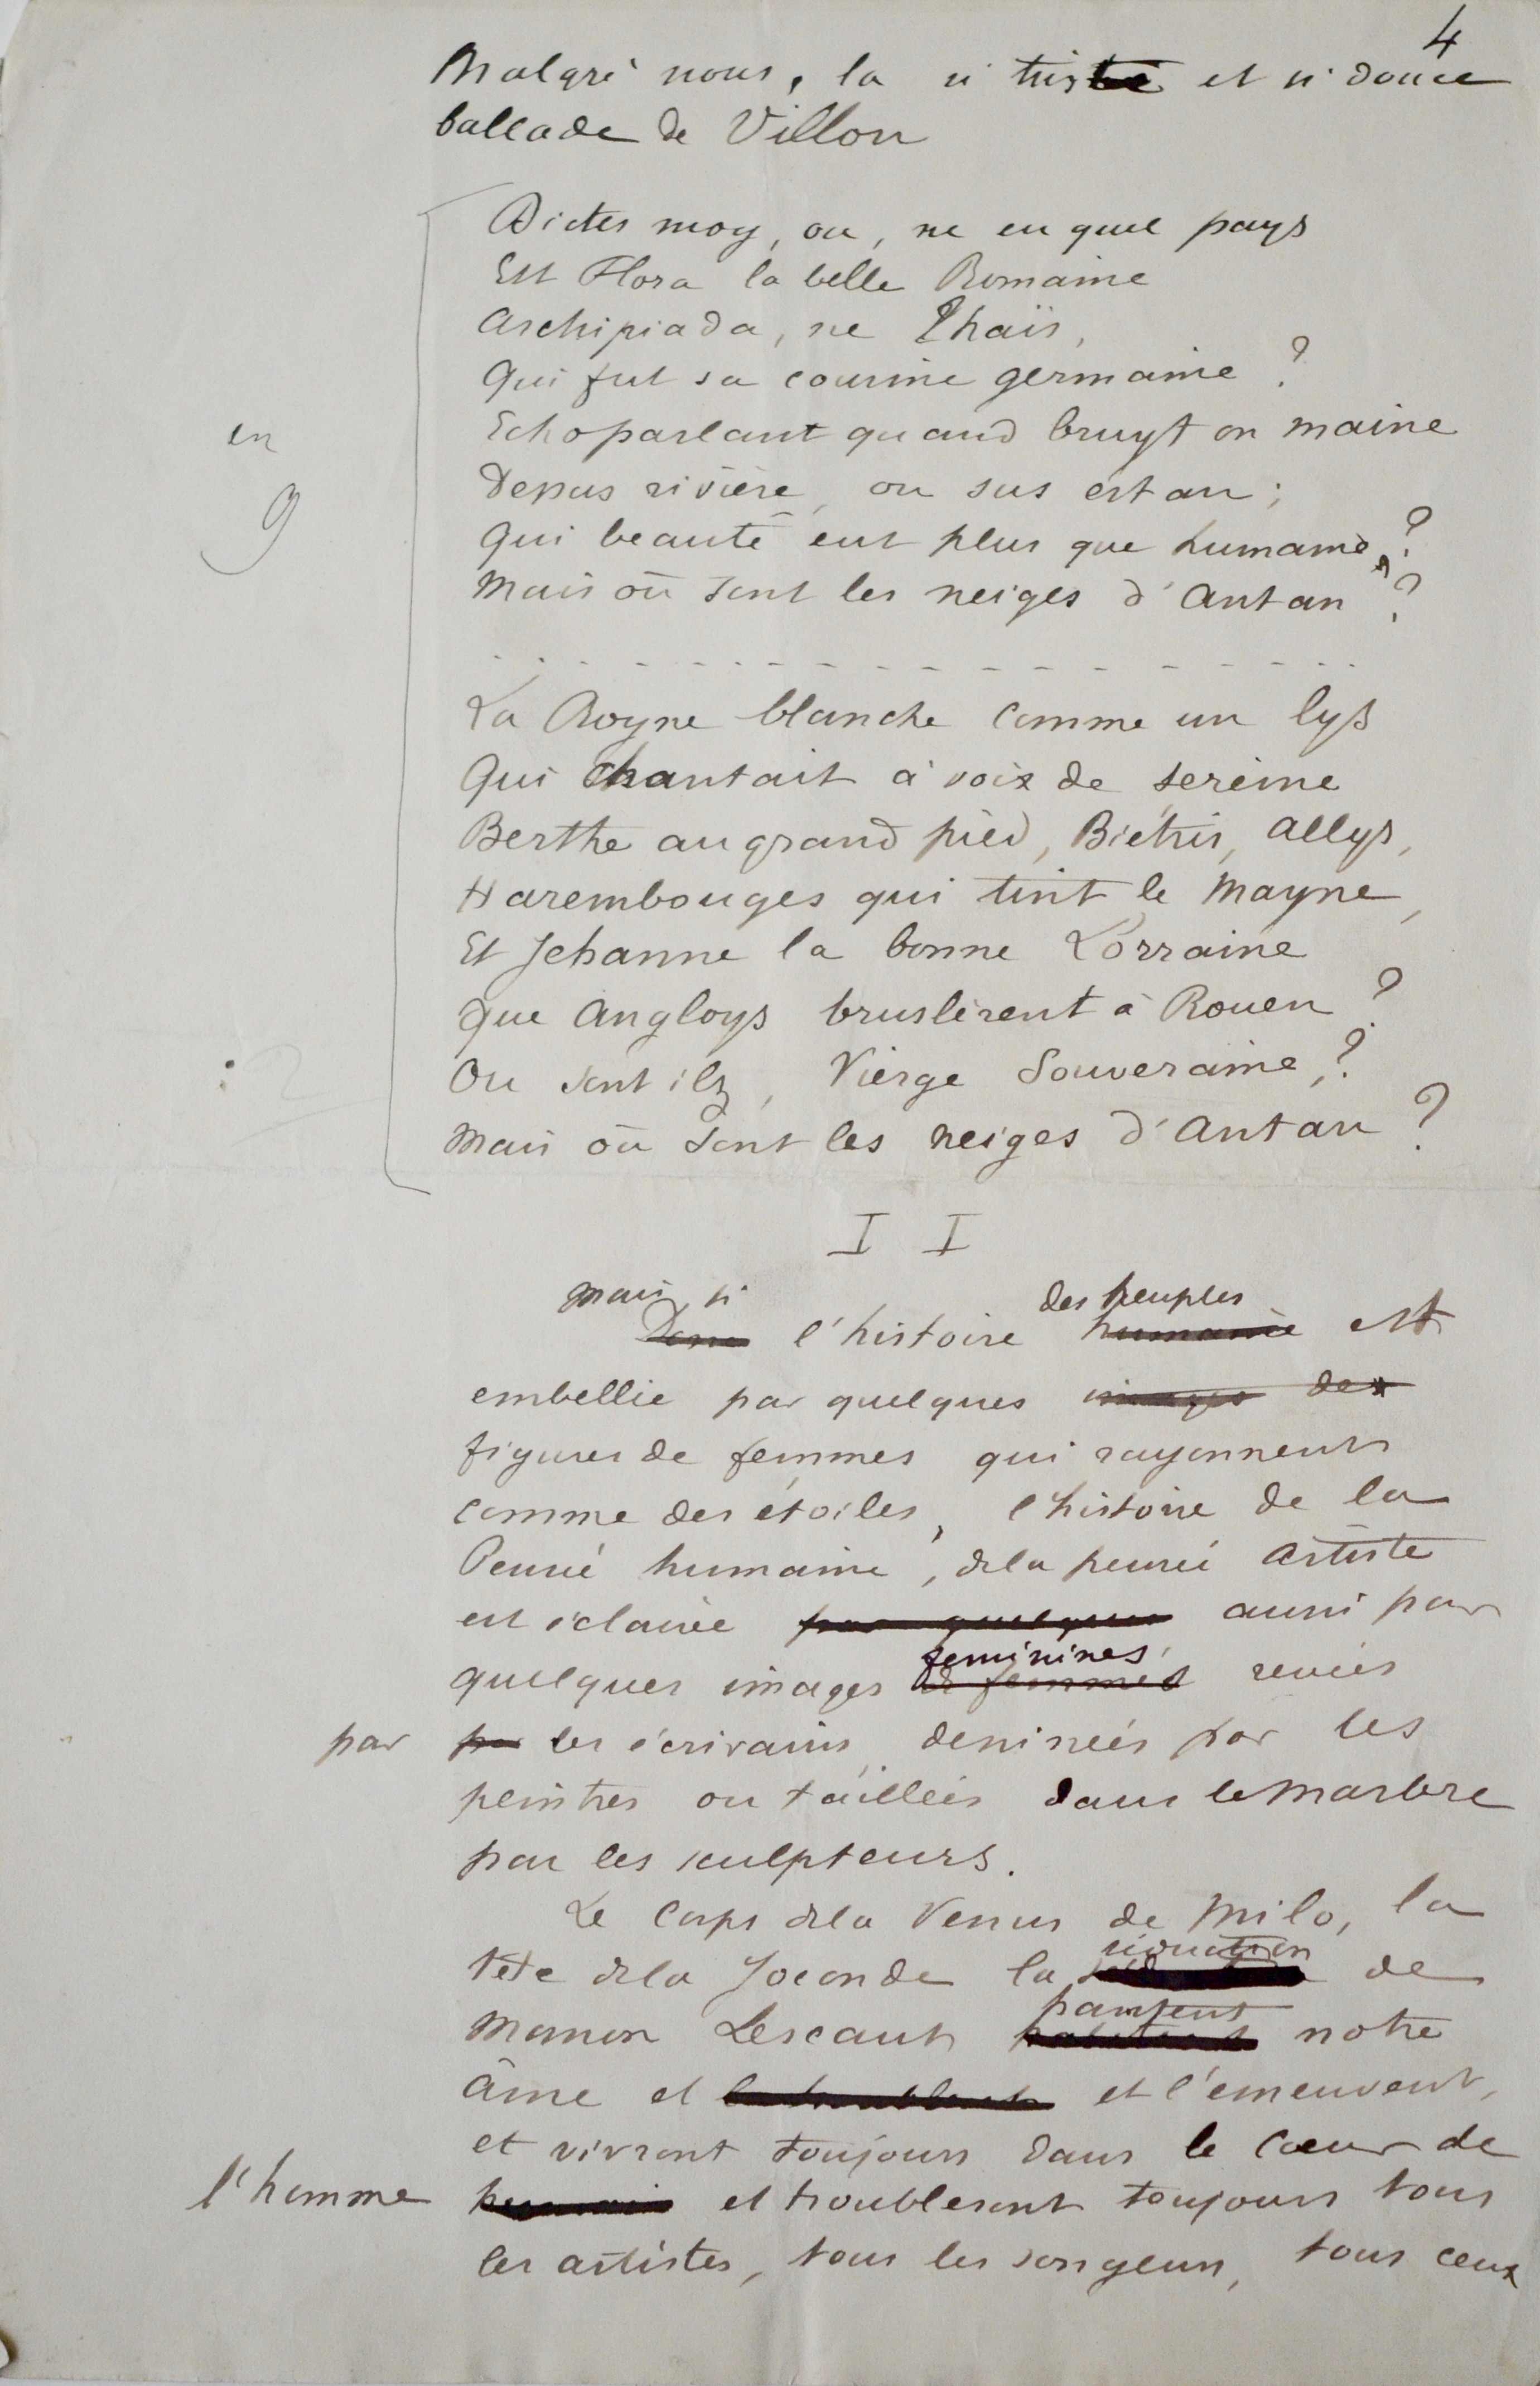 4
Malgré nous, la si triste et si douce
ballade de Villon
Dictes moy, ou, ne en quel pays
Est Flora la belle Romaine
Archipiada, ne Thaïs,
Qui fut sa cousine germaine ?
Echo parlant quand bruyt on maine
Dessus rivière, ou sus estan ;
Qui beauté eut plus que humaine ?
Mais où sont les neiges d'Antan ?
La Royne blanche comme un lys
Qui chantait à voix de serème
Berthe au grand pied, Biétris, Allys,
Harembouges qui tint le Mayne,
Et Jehanne la bonne Lorraine
Que Angloys bruslèrent à Rouen ?
Ou sont ilz, Vierge Souveraine, ?
Mais où sont les neiges d'Antan ?
en
9
II
Mais si des peuples
Donc l'histoire humaine est
embellie par quelques images des
figures de femmes qui rayonnent
comme des étoiles, l'histoire de la
Pensée humaine, de la pensée artiste
est éclairée par quelques aussi par
féminines,
quelques images de femmes rêvées
par par les écrivains, dessinées par les
peintres ou taillées dans le marbre
par les sculpteurs.
Le corps de la Venus de Milo, la
séduction
tête de la Joconde la de
hantent
Manon Lescaut notre
âme et et l'émeuvent,
et vivront toujours dans le cœur de
l'homme et troubleront toujours tous
les artistes, tous les songeurs, tous ceux